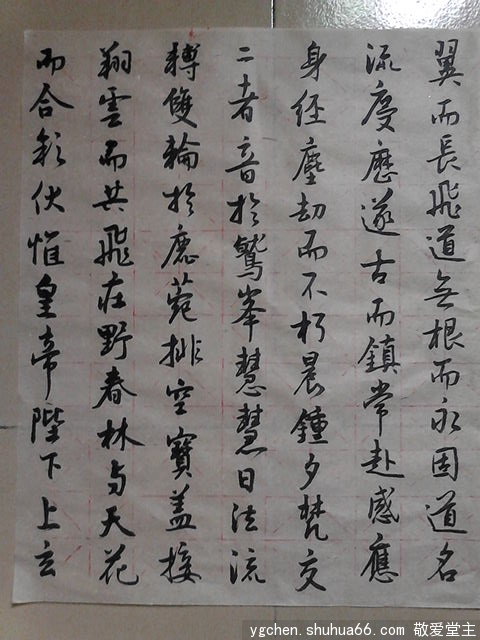 翼而長飛道無根而永固道名
流慶歷遂古而鎮常赴感應
身經塵劫而不朽晨鐘夕梵交
二者音於鷲峯慧慧日法流
轉雙輪於鹿菀排空寶蓋接
翔雲而共飛莊野春林与天花
而合彩伏惟皇帝陛下上玄
ygchen.shuhua66.com 敬爱堂主